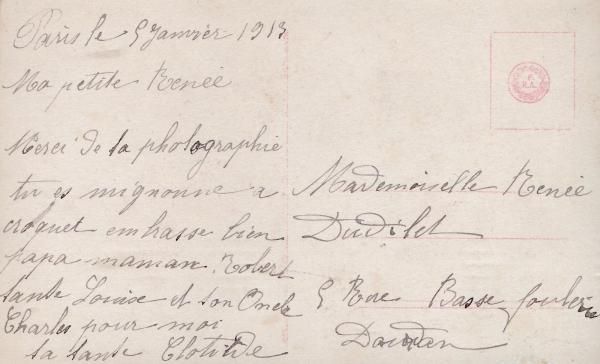 Paris le 5 Janvier 1913
Ma petite Renée
Merci de ta photographie
tu es mignonne a
croquet embrasse bien
papa maman. Robert
tante Louise et ton Oncle
Charles pour moi
ta tante Clotilde
Mademoiselle Renée
Dudilet
5 Rue Basse